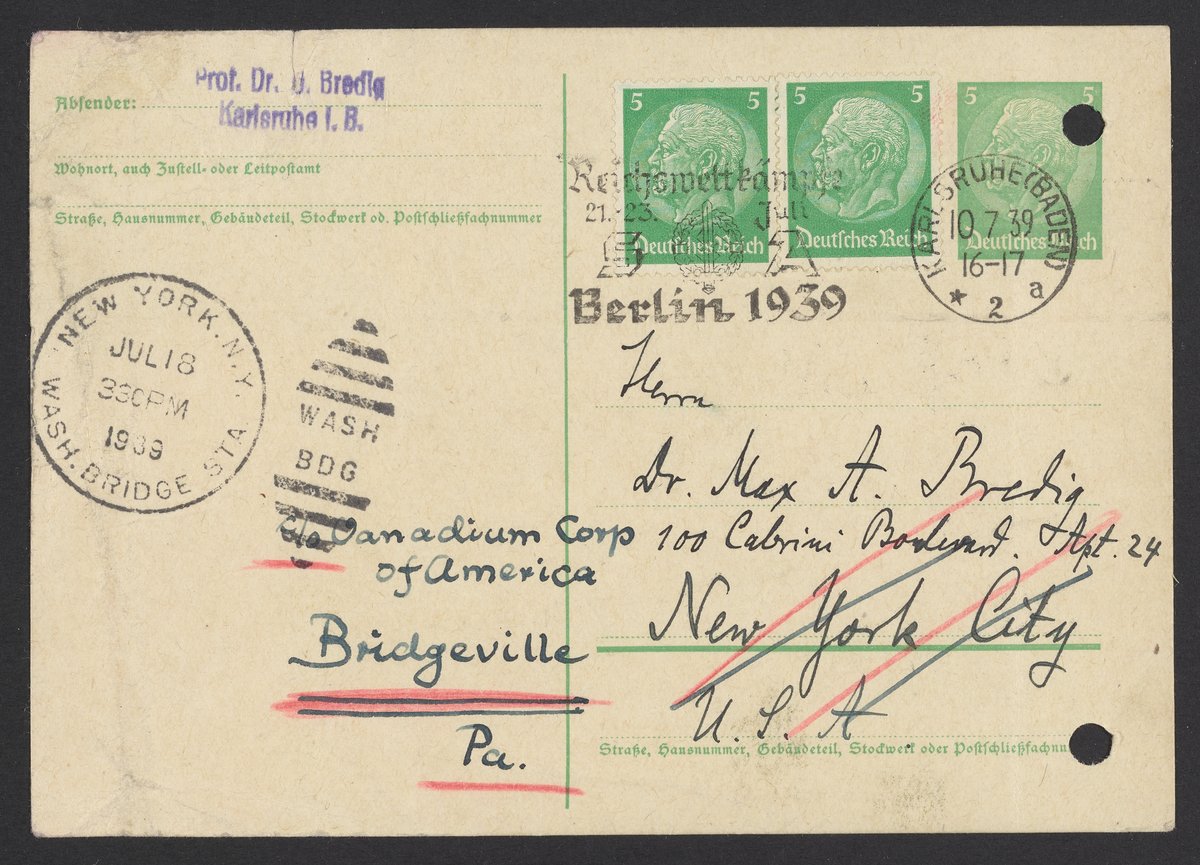 Prof. Dr. G. Bredig
Karlsruhe i. B.
Absender:
Wohnort, auch Zustell- oder Leitpostamt
Straße, Hausnummer, Gebäudeteil, Stockwerk od. Postschließfachnummer
5 5
Deutsches Reich
5 5
Deutsches Reich
5 5
Deutsches Reich
Reichswettkämpfe
21.-23. Juli
SA
Berlin 1939
KARLSRUHE (BADEN)
10.7.39
16-17
* 2 a
NEW YORK, N.Y.
JUL 18
330 PM
1939
WASH. BRIDGE STA.
WASH
BDG
Herrn
Dr. Max A. Bredig
100 Cabrini Boulevard. Apt. 24
New York City
U. S. A
c/o Vanadium Corp
of America
Bridgeville
Pa.
Straße, Hausnummer, Gebäudeteil, Stockwerk oder Postschließfachnu